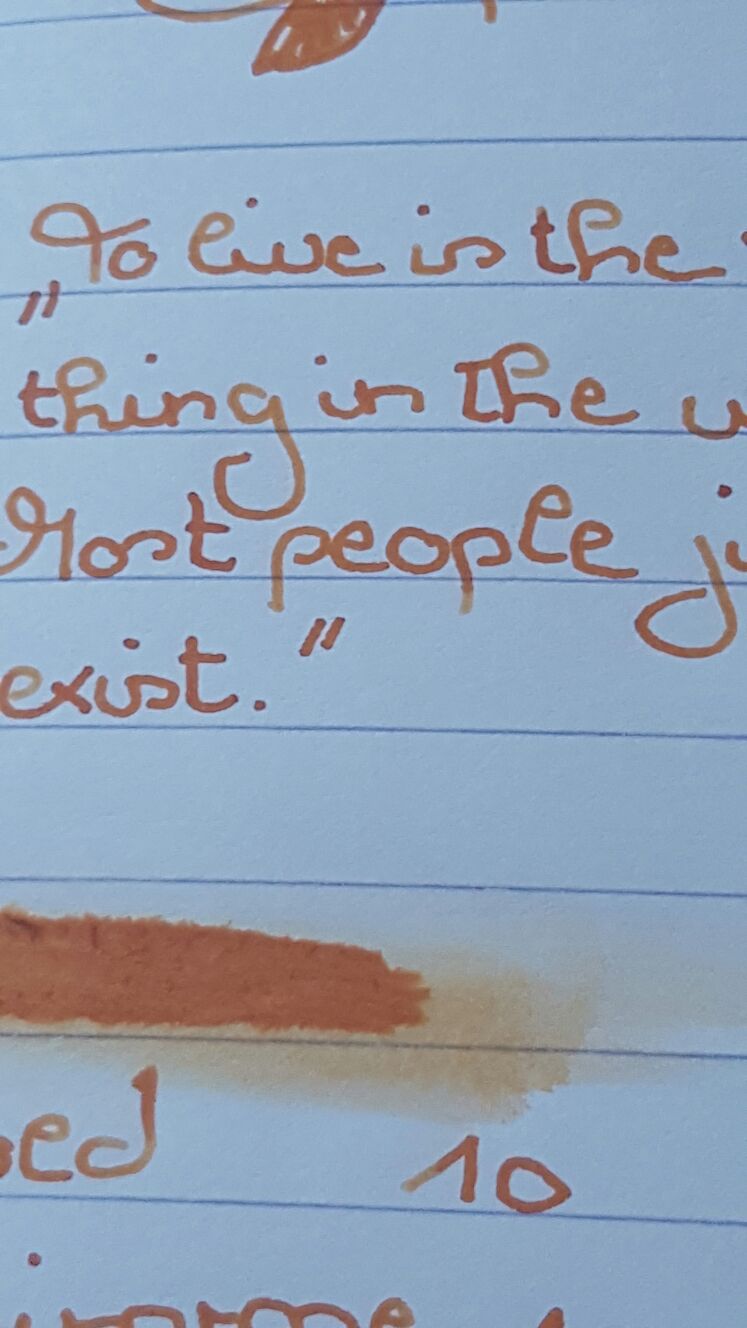 „To live is the
thing in the
Most people
exist."
10